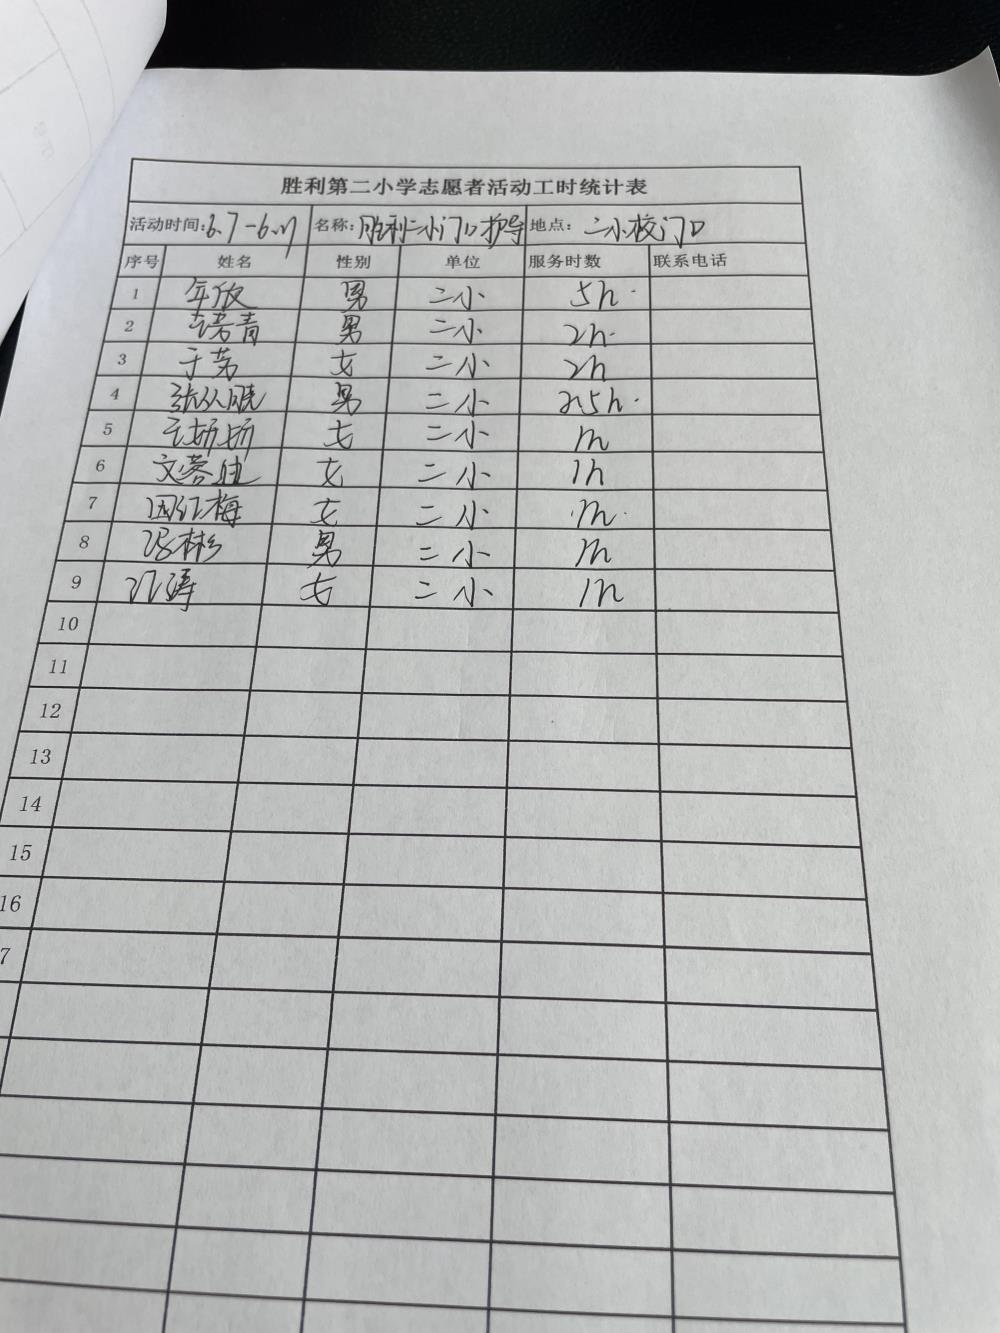 胜利第二小学志愿者活动工时统计表
活动时间: 6.7-6. 名称: 胜利二小门口护导 地点: 二小校门口
序号 姓名 性别 单位 服务时数 联系电话
1 年 男 二小 5h
2 青 男 二小 2h
3 于 女 二小 2h
4 张 男 二小 2.5h
5 女 二小 1h
6 文蓉 女 二小 1h
7 国红梅 女 二小 1h
8 冯彬 男 二小 1h
9 女 二小 1h
10
11
12
13
14
15
16
7